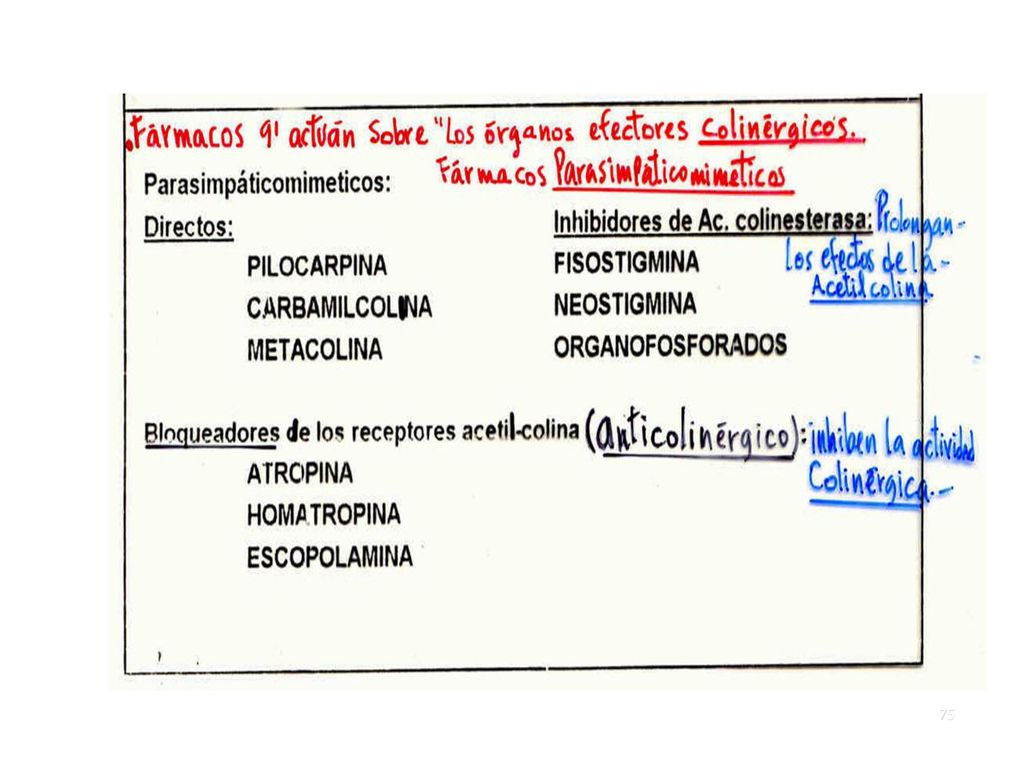 .Fármacos q' actuán Sobre "Los órganos efectores Colinérgicos.
Fármacos Parasimpáticomiméticos
Parasimpáticomimeticos:
Directos:
PILOCARPINA
CARBAMILCOLINA
METACOLINA
Inhibidores de Ac. colinesterasa: Prolongan-
Los efectos de la-
Acetil colina
FISOSTIGMINA
NEOSTIGMINA
ORGANOFOSFORADOS
Bloqueadores de los receptores acetil-colina (anticolinérgico): inhiben la actividad
Colinérgica.-
ATROPINA
HOMATROPINA
ESCOPOLAMINA
75